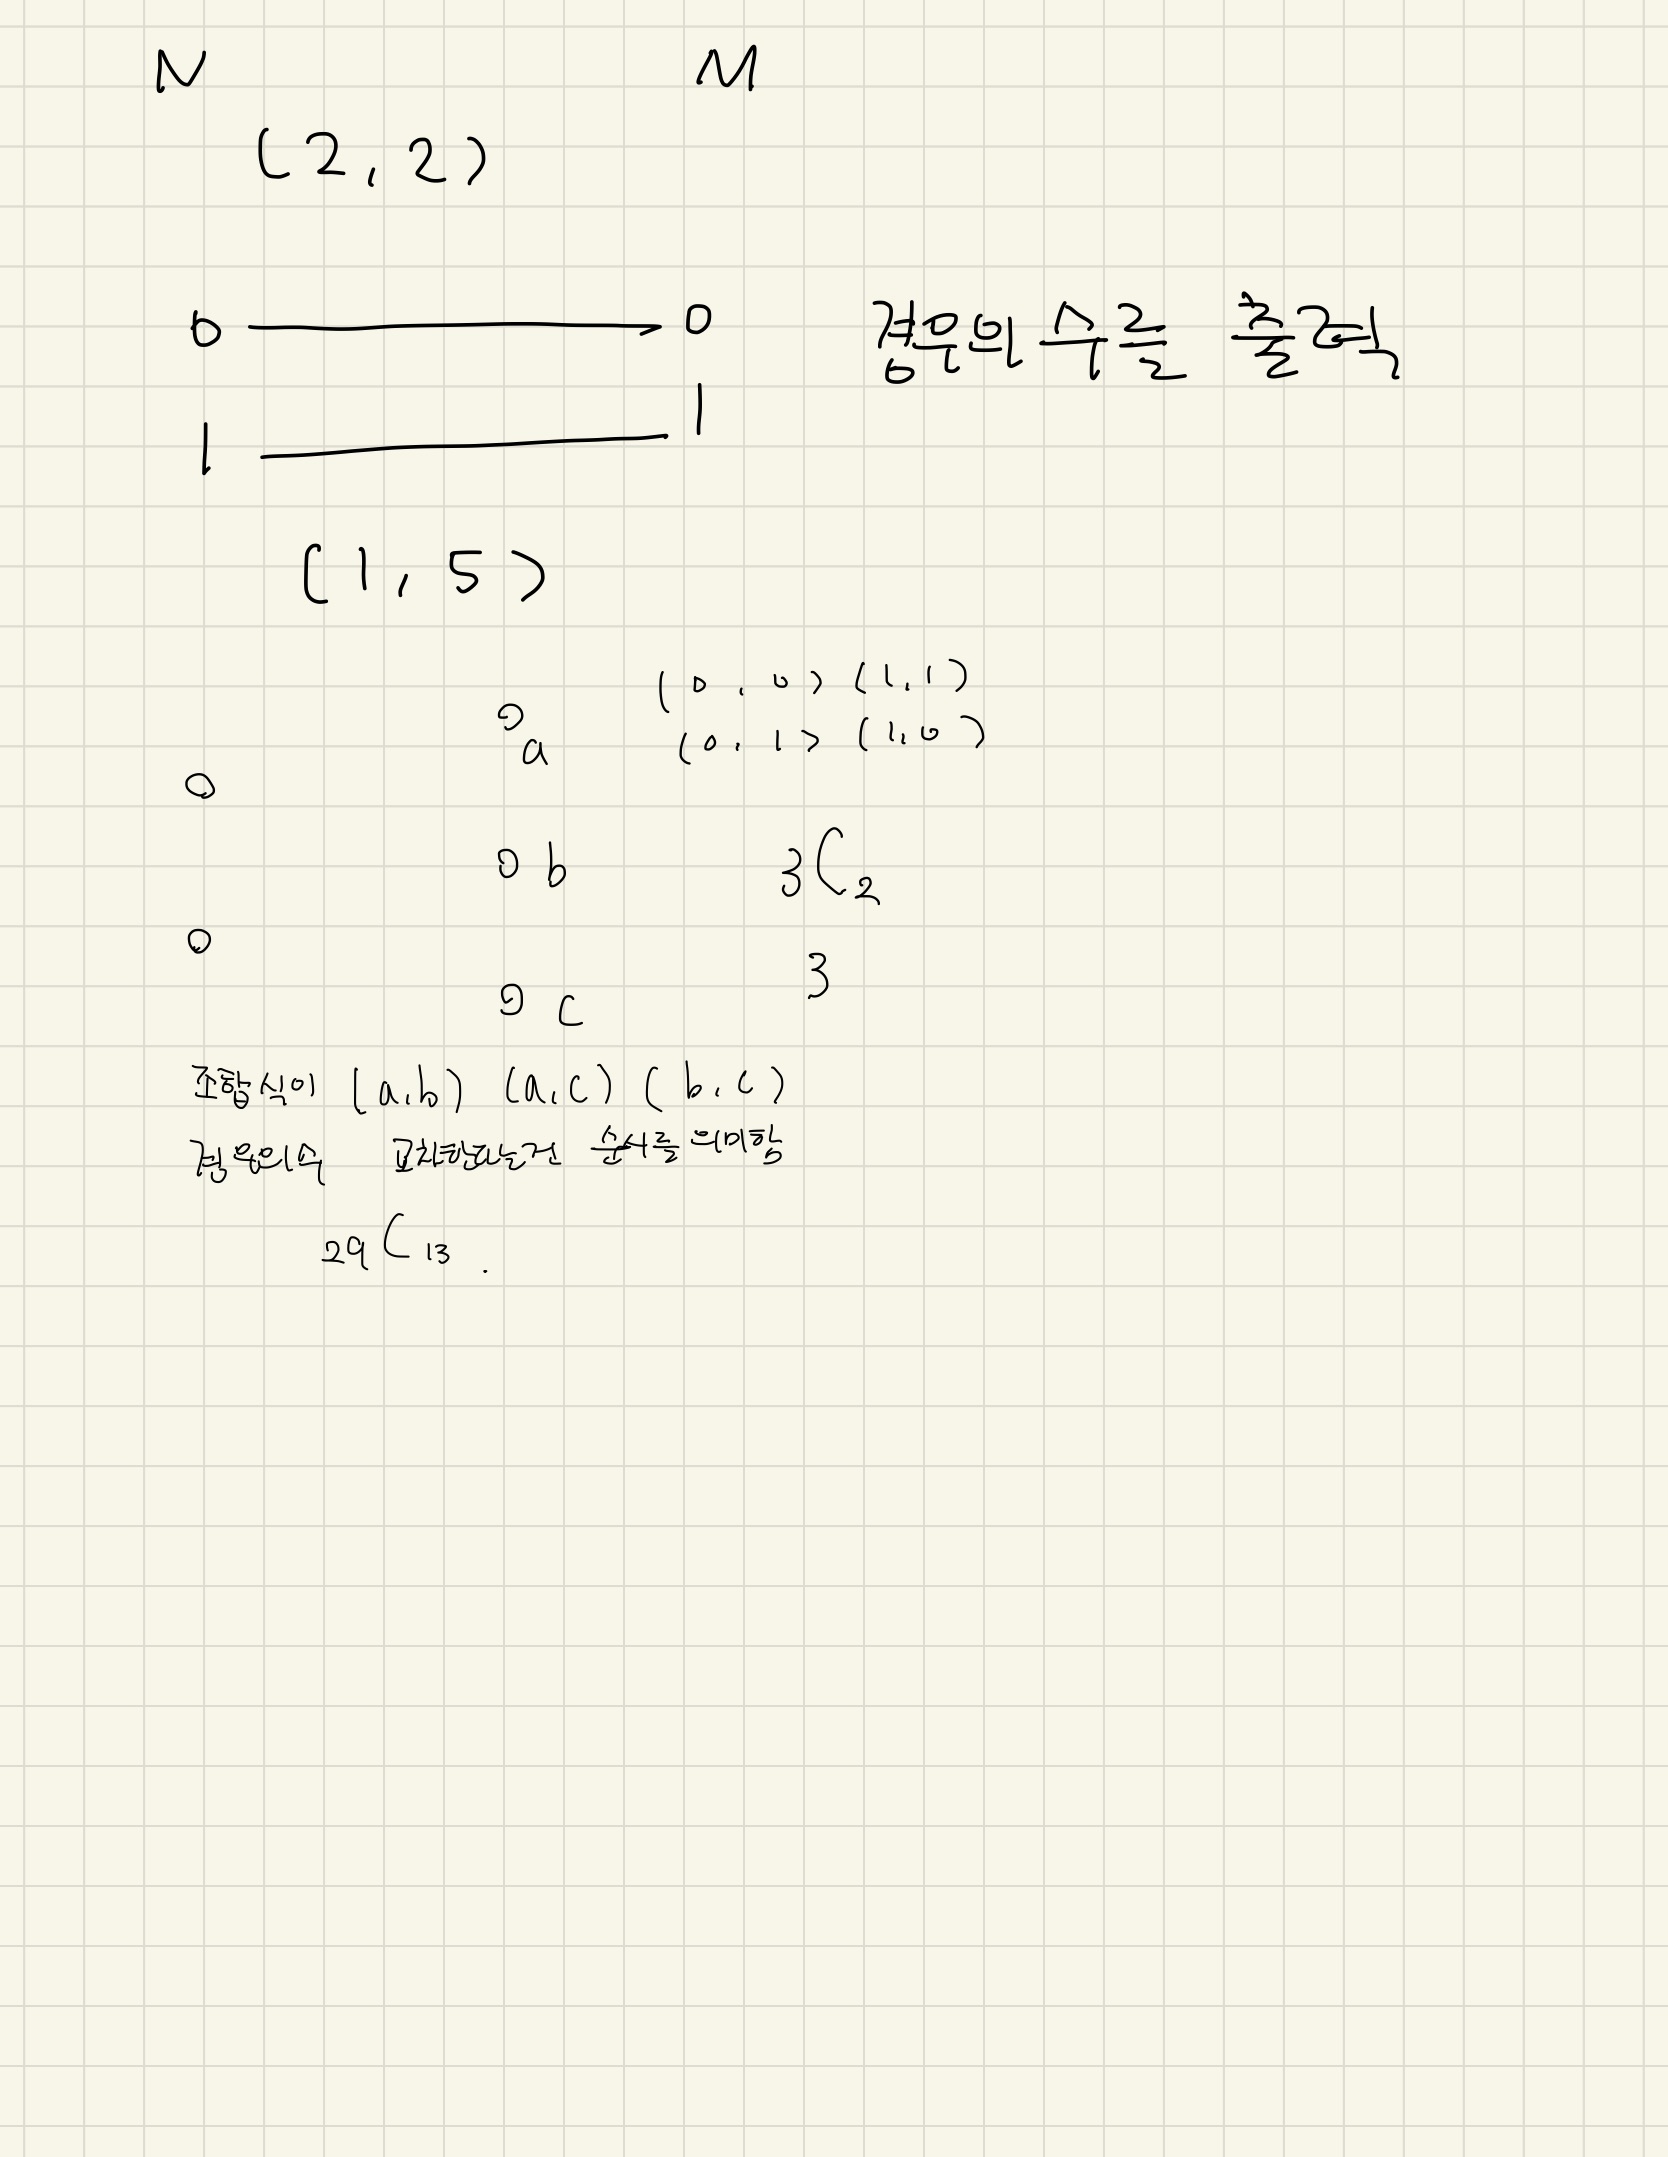 N M
(2, 2)
0 0 경우의 수를 출력
1 1
(1, 5)
(0, 0) (1, 1)
(0, 1) (1, 0)
a
b 3C2
3
c
조합식이 (a,b) (a,c) (b,c)
경우의수 교차한다는건 순서를 의미함
29C13.